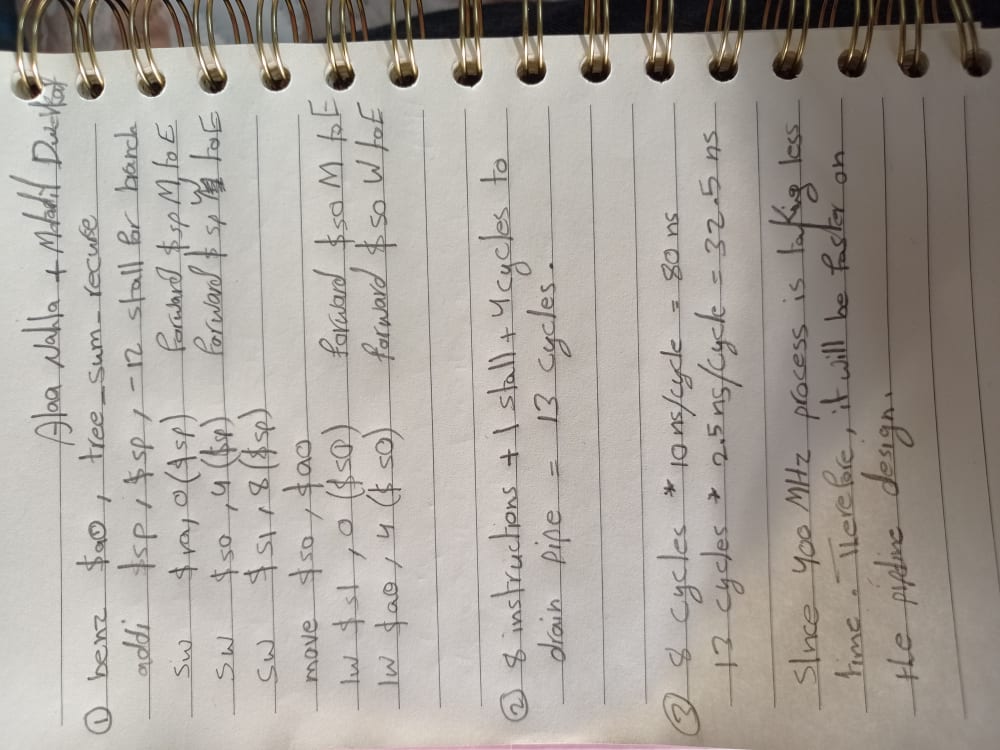 Alaa Nahla +
① benz $a0, tree_sum_recurse
addi $sp, $sp, -12 stall for branch
sw $ra, 0($sp) forward $sp M to E
sw $s0, 4($sp) forward $sp W to E
sw $s1, 8($sp)
move $s0, $a0
lw $s1, 0($s0) forward $s0 M to E
lw $a0, 4($s0) forward $s0 W to E
② 8 instructions + 1 stall + 4 cycles to
drain pipe = 13 cycles.
③ 8 cycles * 10ns/cycle = 80 ns
13 cycles * 2.5ns/cycle = 32.5 ns
Since 400 MHz process is taking less
time. Therefore, it will be faster on
the pipline design.